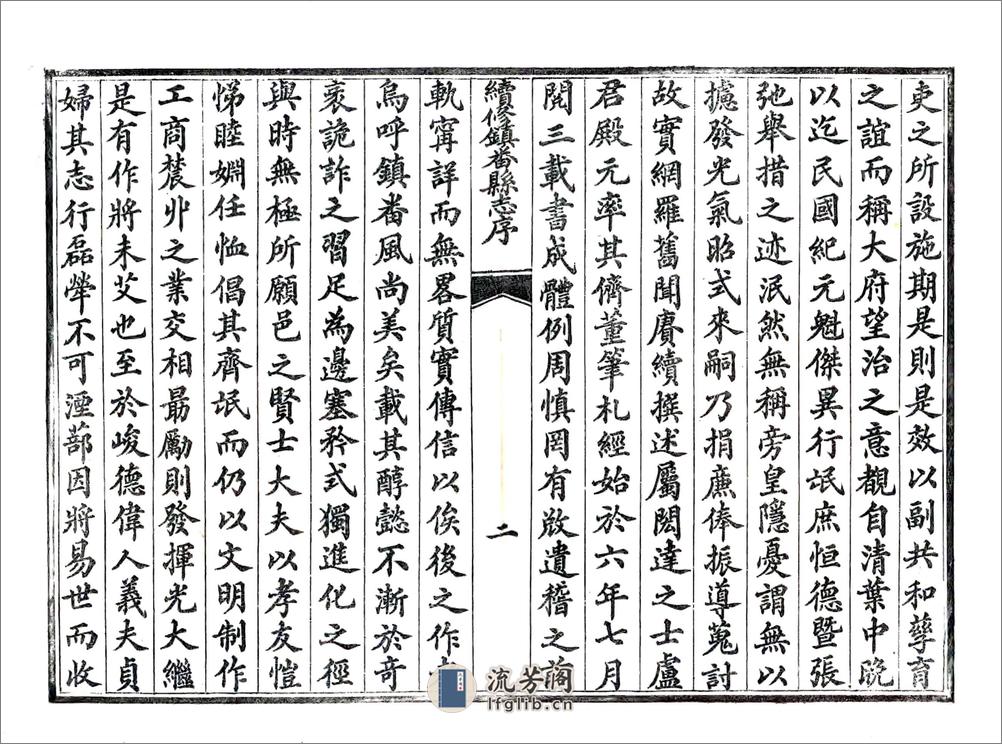 吏之所設施期是則是效以副共和孳育
之誼而稱大府望治之意覩自清葉中晚
以迄民國紀元魁傑異行氓庶恒德暨張
弛舉措之迹泯然無稱旁皇隱憂謂無以
攄發光氣昭式來嗣乃捐廉俸振導蒐討
故實網羅舊聞賡續撰述屬閎達之士盧
君殿元率其儕董筆札經始於六年七月
閱三載書成體例周慎罔有放遺稽之前
續修鎮番縣志序
二
軌甯詳而無畧質實傳信以俟後之作
烏呼鎮番風尚美矣載其醇懿不漸於奇
衺詭詐之習足為邊塞矜式獨進化之徑
與時無極所願邑之賢士大夫以孝友愷
悌睦婣任恤倡其齊氓而仍以文明制作
工商蓺丱之業交相勗勵則發揮光大繼
是有作將未艾也至於峻德偉人義夫貞
婦其志行磊犖不可湮蔀因將易世而收
流芳阁
lfglib.cn